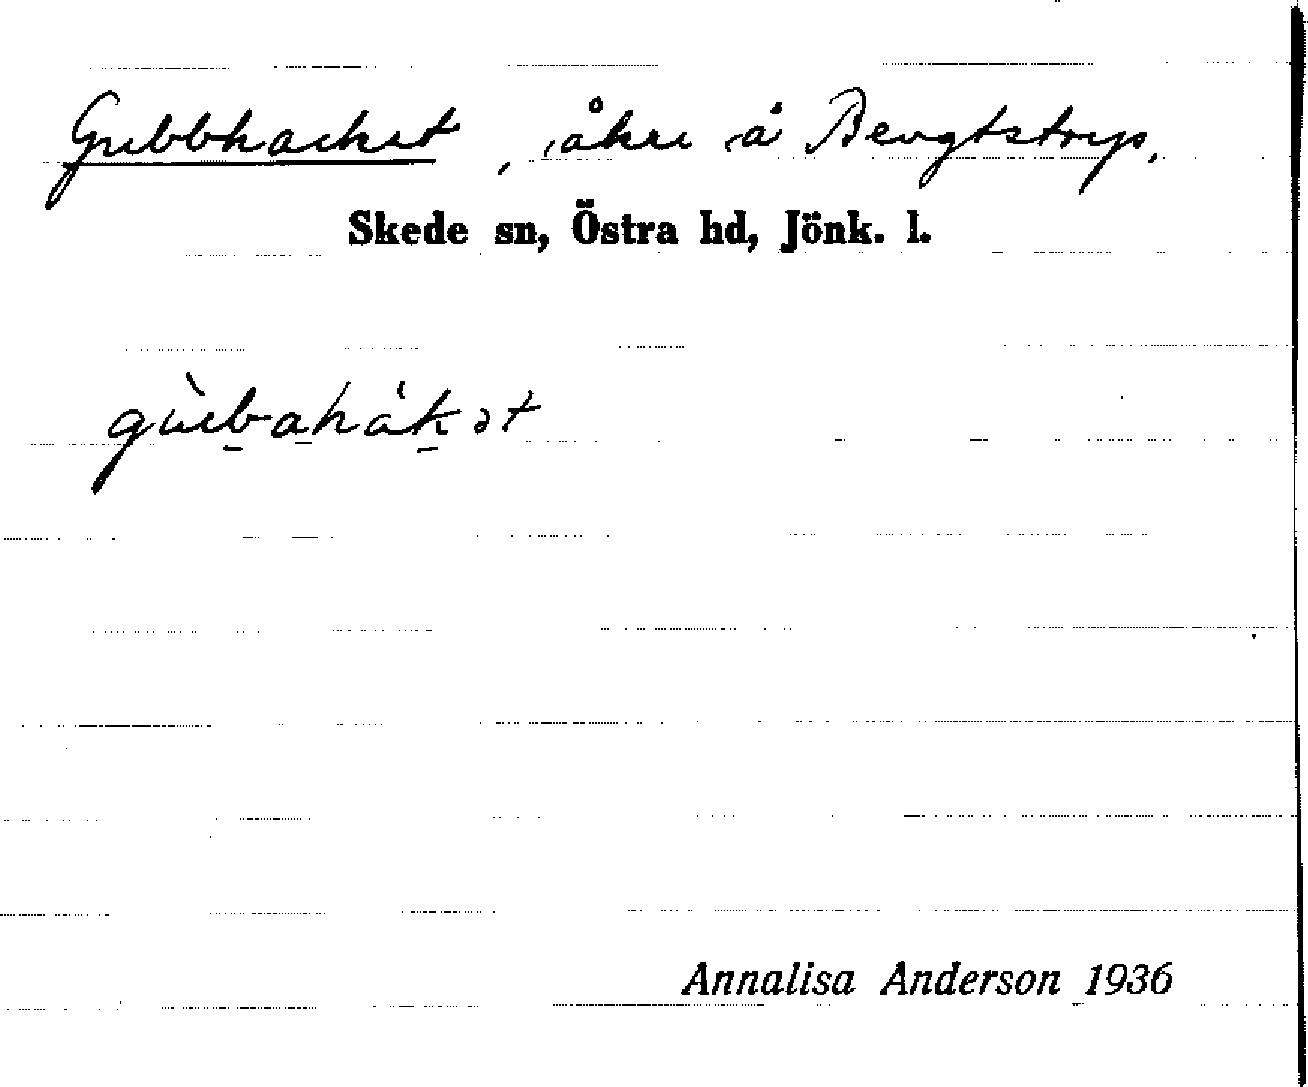 Gubbhacket, åker å Bengtstorp.
Skede sn, Östra hd, Jönk. l.
gùbahákət
Annalisa Anderson 1936